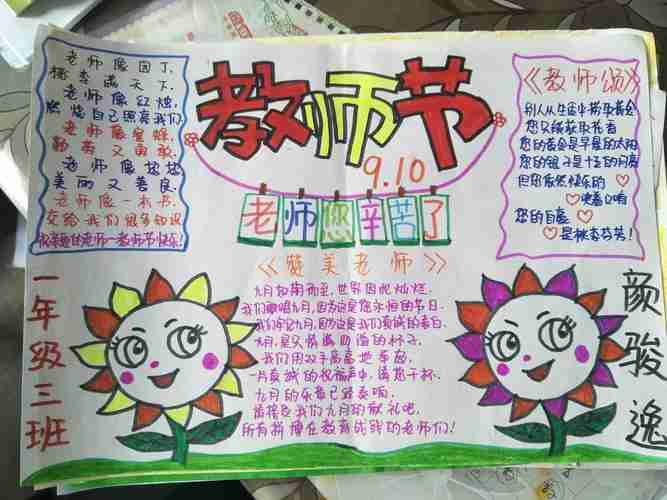 教师节
9.10
老师您辛苦了
老师像园丁,
桃李满天下.
老师像红烛,
燃烧自己照亮我们
老师像蜜蜂,
勤劳又勇敢.
老师像
美丽又善良.
老师像一本书.
交给我们很多知识
亲爱的老师—教师节快乐!
《教师颂》
您只
您的黄金是早晨的太阳
您的银子是十五的月亮
但您放然快乐的
您的自豪
是桃李芬芳!
《赞美老师》
九月如期而至,世界因此灿烂.
我们歌唱九月,因为这是您永恒的节日.
我们牢记九月,因为这是我们真诚的表白.
九月,是父情满四溢的杯子.
我们用双手高高地举起.
一片真诚的祝福声中,请您干杯.
九月的乐章已经奏响.
请接受我们九月的献礼吧.
所有拼搏在教育战线的老师们!
一年级三班
颜骏逸